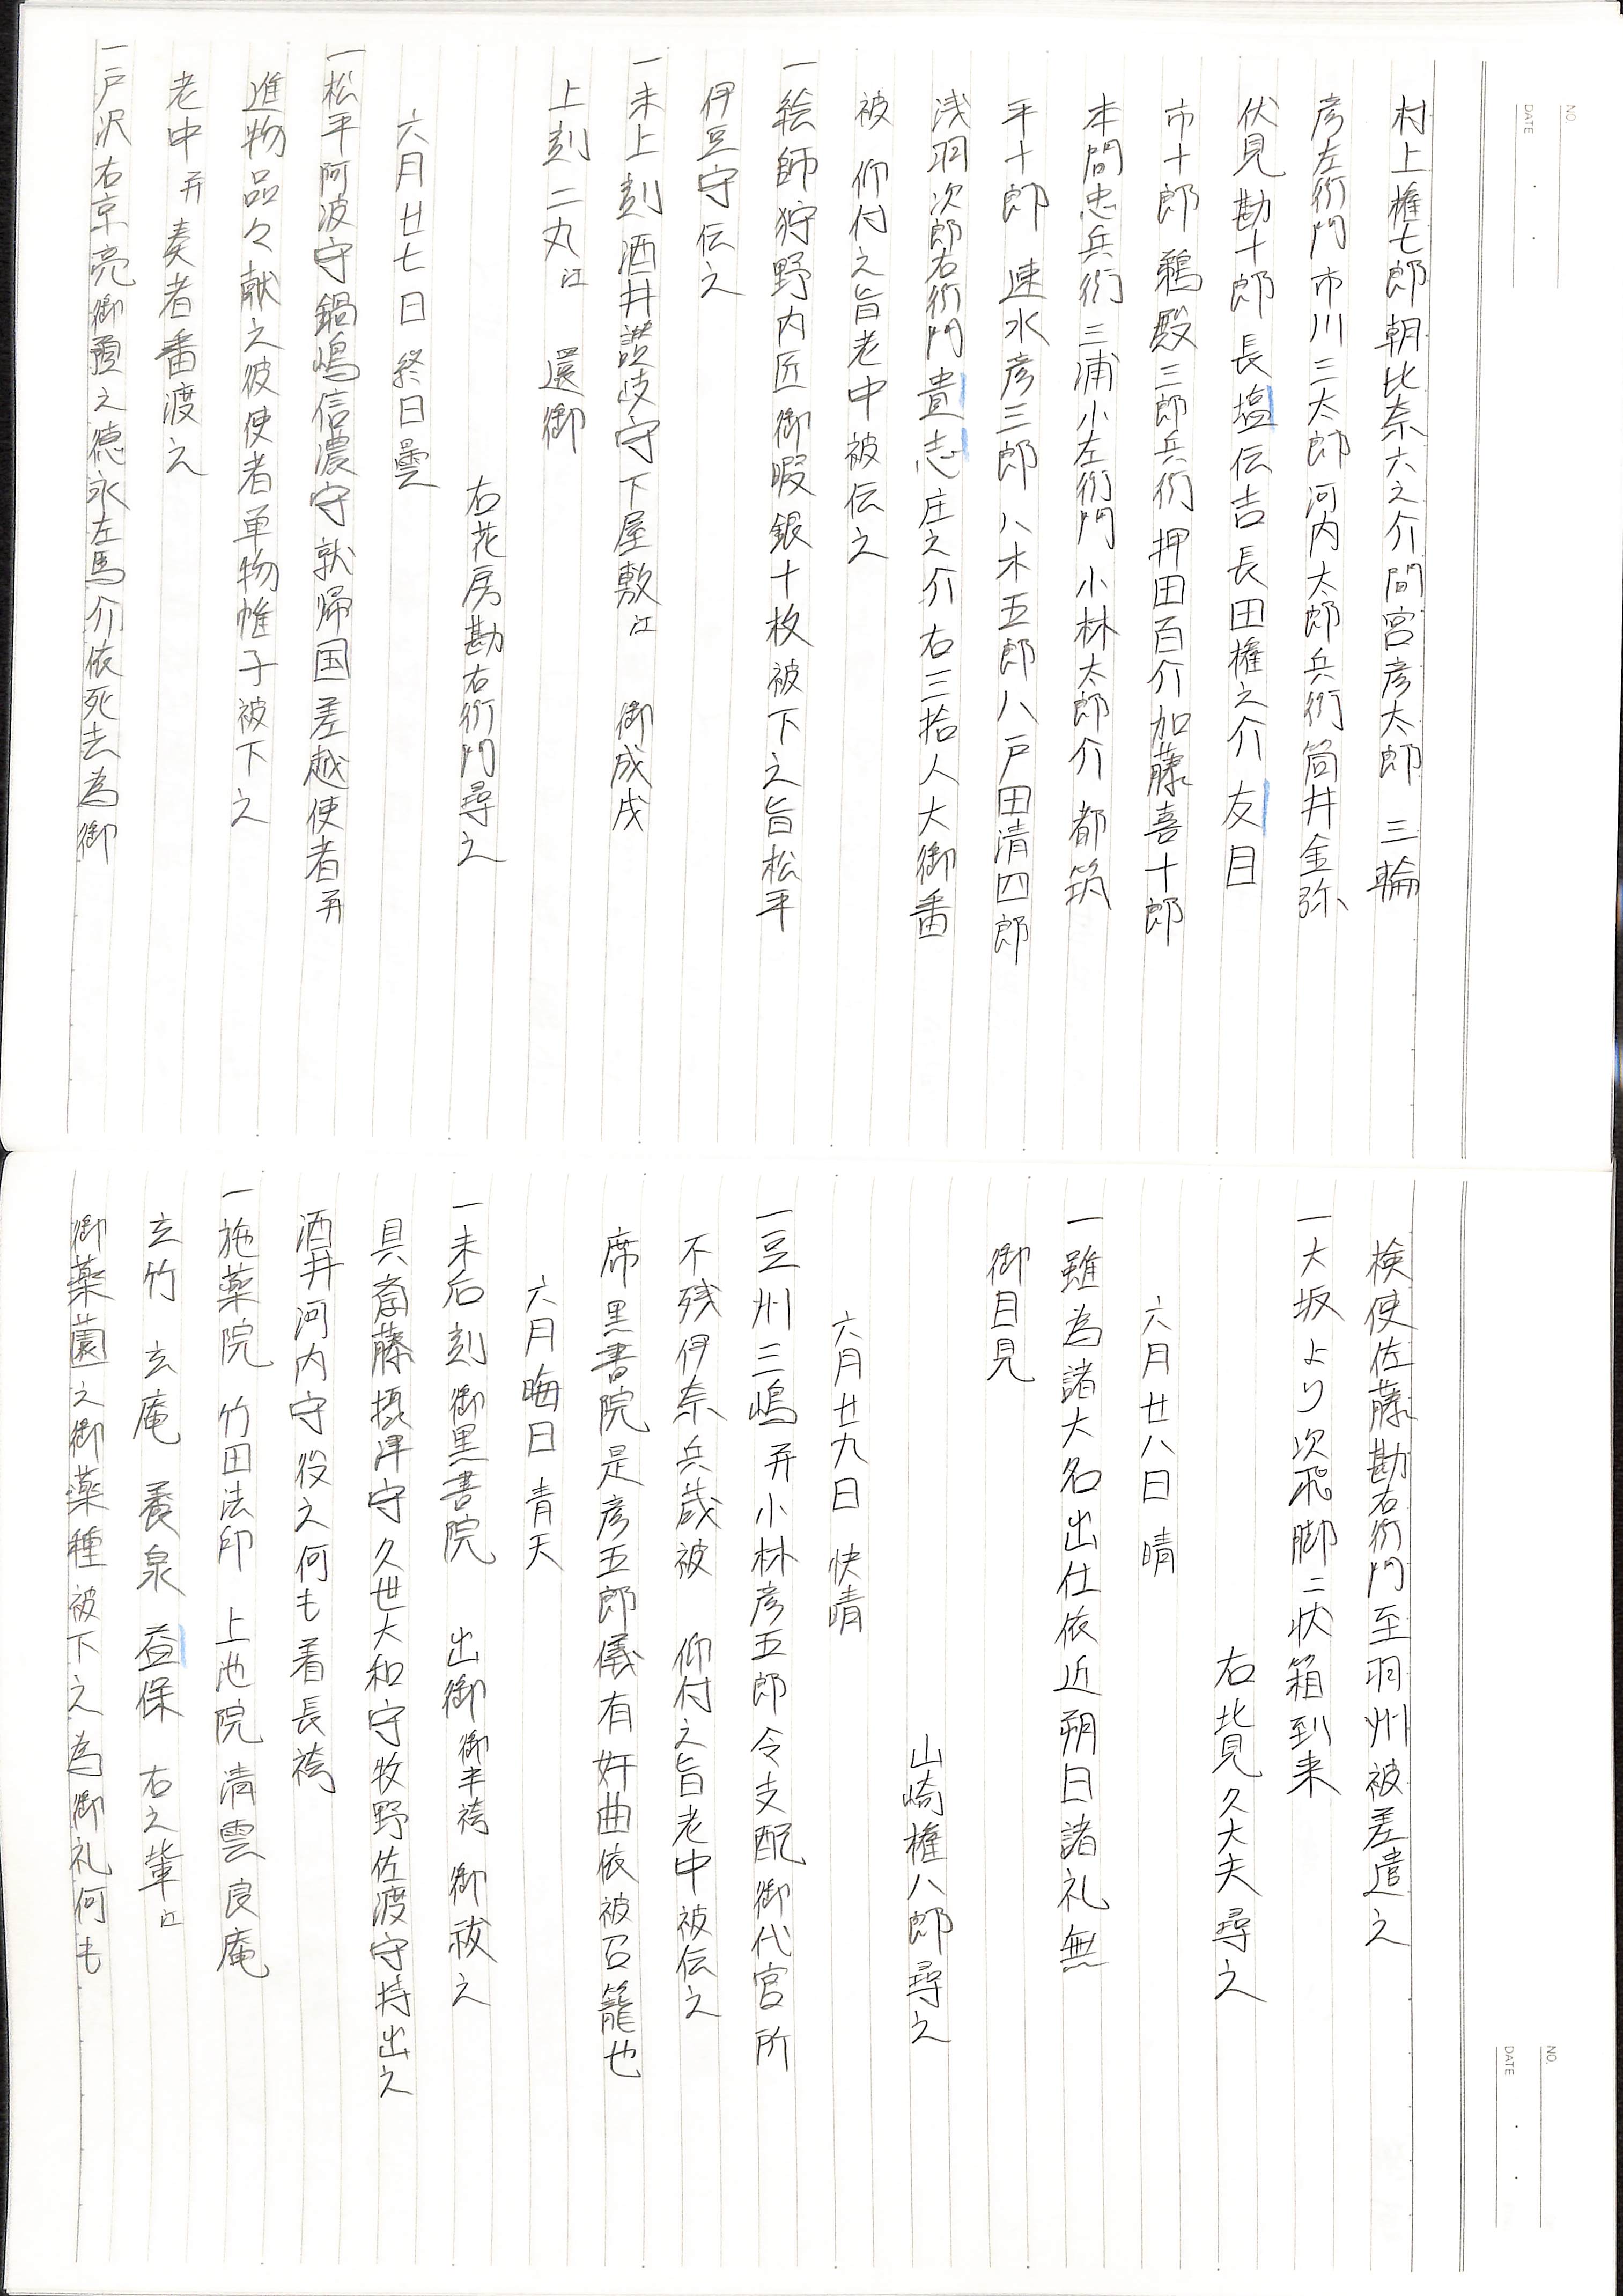 NO.
DATE
村上権七郎 朝比奈六之介 間宮彦太郎 三輪
彦左衛門 市川三太郎 河内太郎兵衛 筒井金弥
伏見勘十郎 長塩伝吉 長田権之介 友目
市十郎 鵜殿三郎兵衛 押田百介 加藤喜十郎
本間忠兵衛 三浦小左衛門 小林太郎介 都筑
平十郎 速水彦三郎 八木五郎八 戸田清四郎
浅羽次郎右衛門 貴志庄之介 右三拾人大御番
被 仰付之旨老中被伝之
一絵師狩野内匠 御暇銀十枚被下之旨松平
伊豆守伝之
一未上刻 酒井讃岐守下屋敷江 御成戌
上刻 二丸江 還御
右花房勘右衛門尋之
六月廿七日 終日曇
一松平阿波守 鍋嶋信濃守就帰国差越使者并
進物品々献之彼使者単物帷子被下之
老中并奏者番渡之
一戸沢右京亮御預之徳永左馬介依死去為御
NO.
DATE
検使佐藤勘右衛門至羽州被差遣之
一大坂より次飛脚ニ状箱到来
右北見久大夫尋之
六月廿八日 晴
一雖為諸大名出仕依近朔日諸礼無
御目見
山崎権八郎尋之
六月廿九日 快晴
一豆州三嶋并小林彦五郎令支配御代官所
不残伊奈兵蔵被 仰付之旨老中被伝之
席黒書院是彦五郎儀有奸曲依被召籠也
六月晦日 青天
一未后刻 御黒書院 出御 御半袴 御祓之
具斎藤摂津守久世大和守牧野佐渡守持出之
酒井河内守役之何も着長袴
一施薬院 竹田法印 上池院 清雲 良庵
玄竹 玄庵 養泉 益保 右之輩江
御薬薗之御薬種被下之為御礼何も